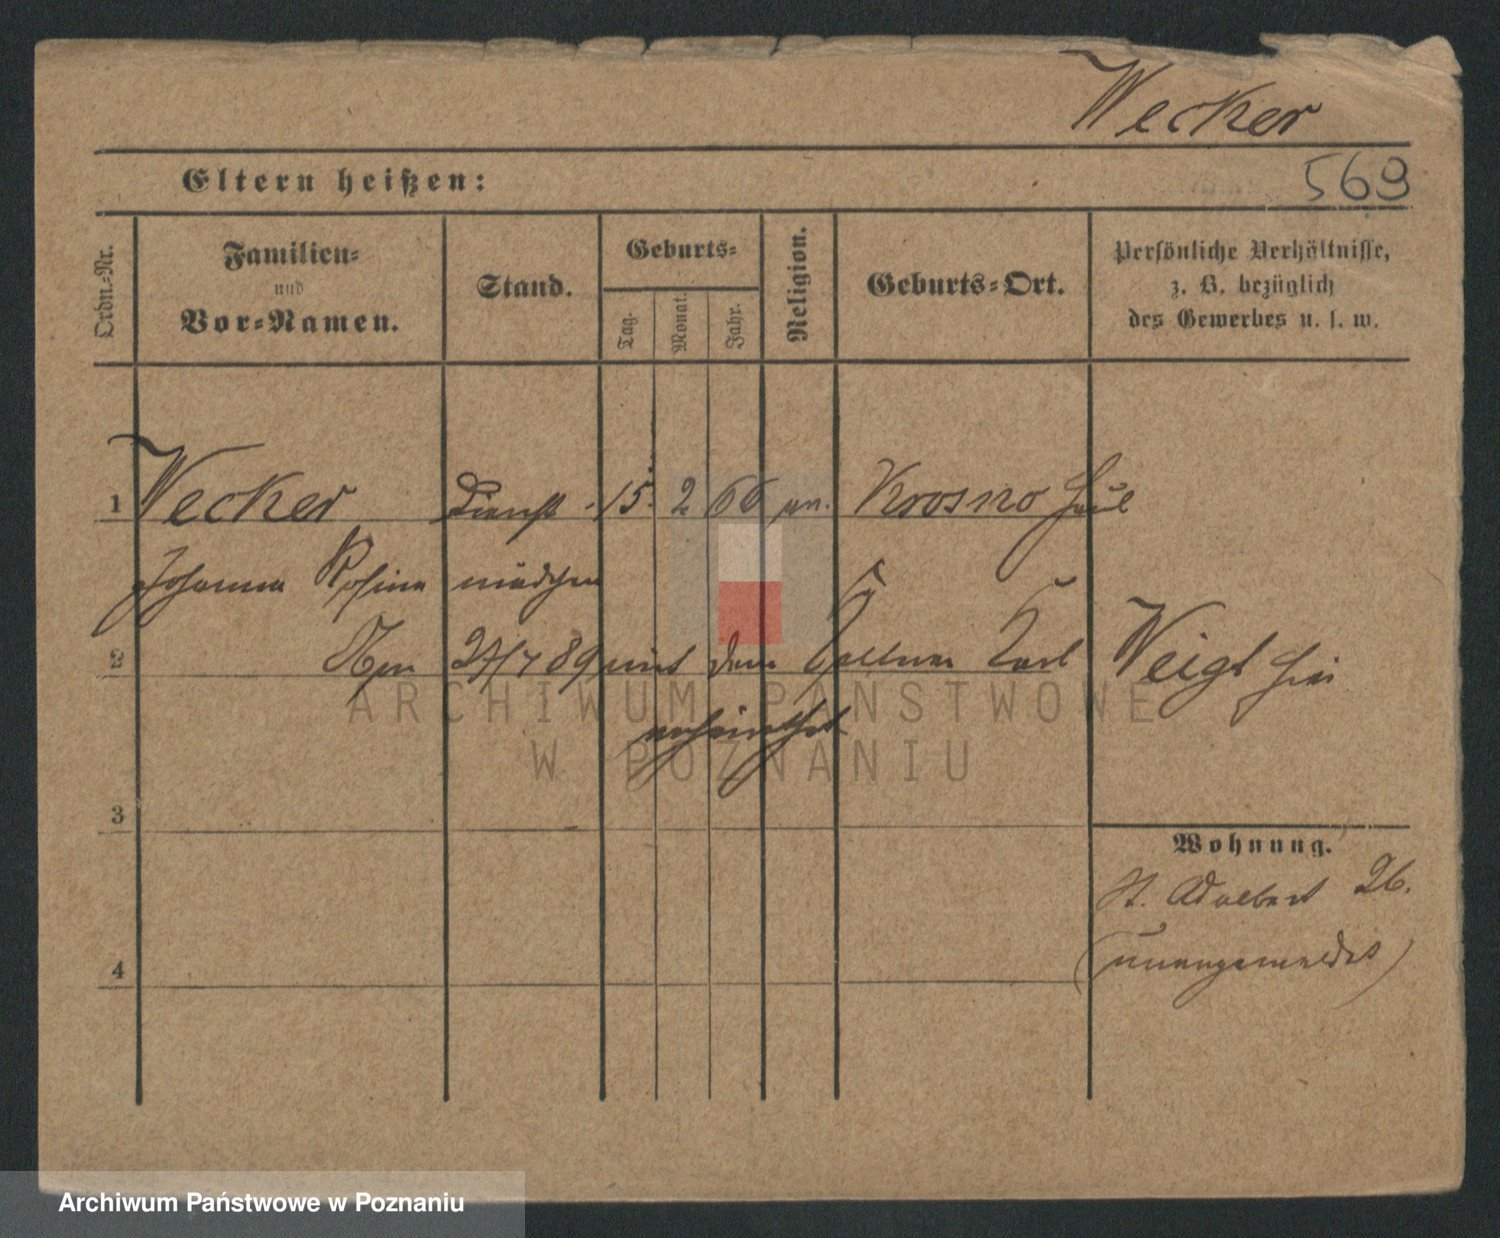 Wecker
Eltern heißen:
569
Ordn.-Nr.
Familien-
und
Vor-Namen.
Stand.
Geburts-
Tag.
Monat.
Jahr.
Religion.
Geburts-Ort.
Persönliche Verhältnisse,
z. B. bezüglich
des Gewerbes u. s. w.
1 Wecker Dienst- 15. 2 66 Krosno
Johanna Rosina mädchen
2 27/7 89 mit dem Kellner Karl Weigt hier
verheirathet
3
Wohnung.
St. Adalbert 26.
(unangemeldet)
4
ARCHIWUM PAŃSTWOWE
W POZNANIU
Archiwum Państwowe w Poznaniu